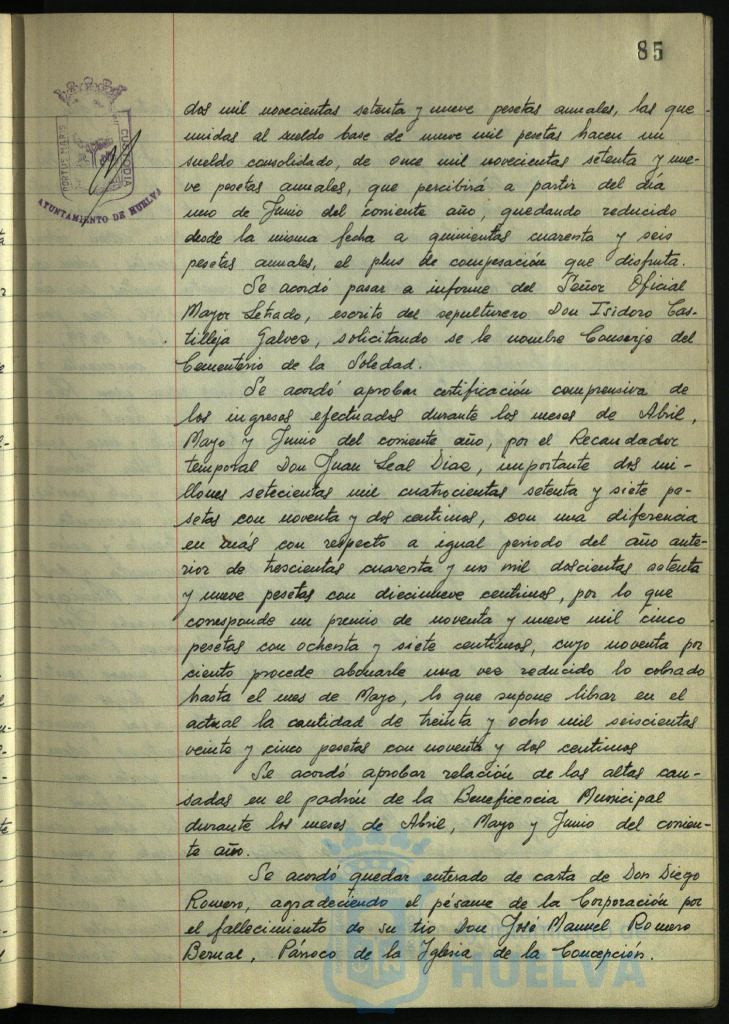 85
PORTUS MARIS
CUSTODIA
AYUNTAMIENTO DE HUELVA
dos mil novecientas setenta y nueve pesetas anuales, las que
unidas al sueldo base de nueve mil pesetas hacen un
sueldo consolidado, de once mil novecientas setenta y nue-
ve pesetas anuales, que percibirá a partir del día
uno de Junio del corriente año, quedando reducido
desde la misma fecha a quinientas cuarenta y seis
pesetas anuales, el plus de compesación que disfruta.
Se acordó pasar a informe del Señor Oficial
Mayor Letrado, escrito del sepulturero Don Isidoro Cas-
tilleja Galvez, solicitando se le nombre Conserje del
Cementerio de la Soledad.
Se acordó aprobar certificación comprensiva de
los ingresos efectuados durante los meses de Abril,
Mayo y Junio del corriente año, por el Recaudador
temporal Don Juan Leal Diaz, importante dos mi-
llones setecientas mil cuatrocientas setenta y siete pe-
setas con noventa y dos centimos, con una diferencia
en mas con respecto a igual periodo del año ante-
rior de trescientas cuarenta y un mil doscientas setenta
y nueve pesetas con diecinueve centimos, por lo que
corresponde un premio de noventa y nueve mil cinco
pesetas con ochenta y siete centimos, cuyo noventa por
ciento procede abonarle una vez reducido lo cobrado
hasta el mes de Mayo, lo que supone librar en el
actual la cantidad de treinta y ocho mil seiscientas
veinte y cinco pesetas con noventa y dos centimos
Se acordó aprobar relación de las altas cau-
sadas en el padrón de la Beneficencia Municipal
durante los meses de Abril, Mayo y Junio del corrien-
te año.
Se acordó quedar enterado de carta de Don Diego
Romero, agradeciendo el pésame de la Corporación por
el fallecimiento de su tio Don José Manuel Romero
Bernal, Párroco de la Iglesia de la Concepción.
HUELVA